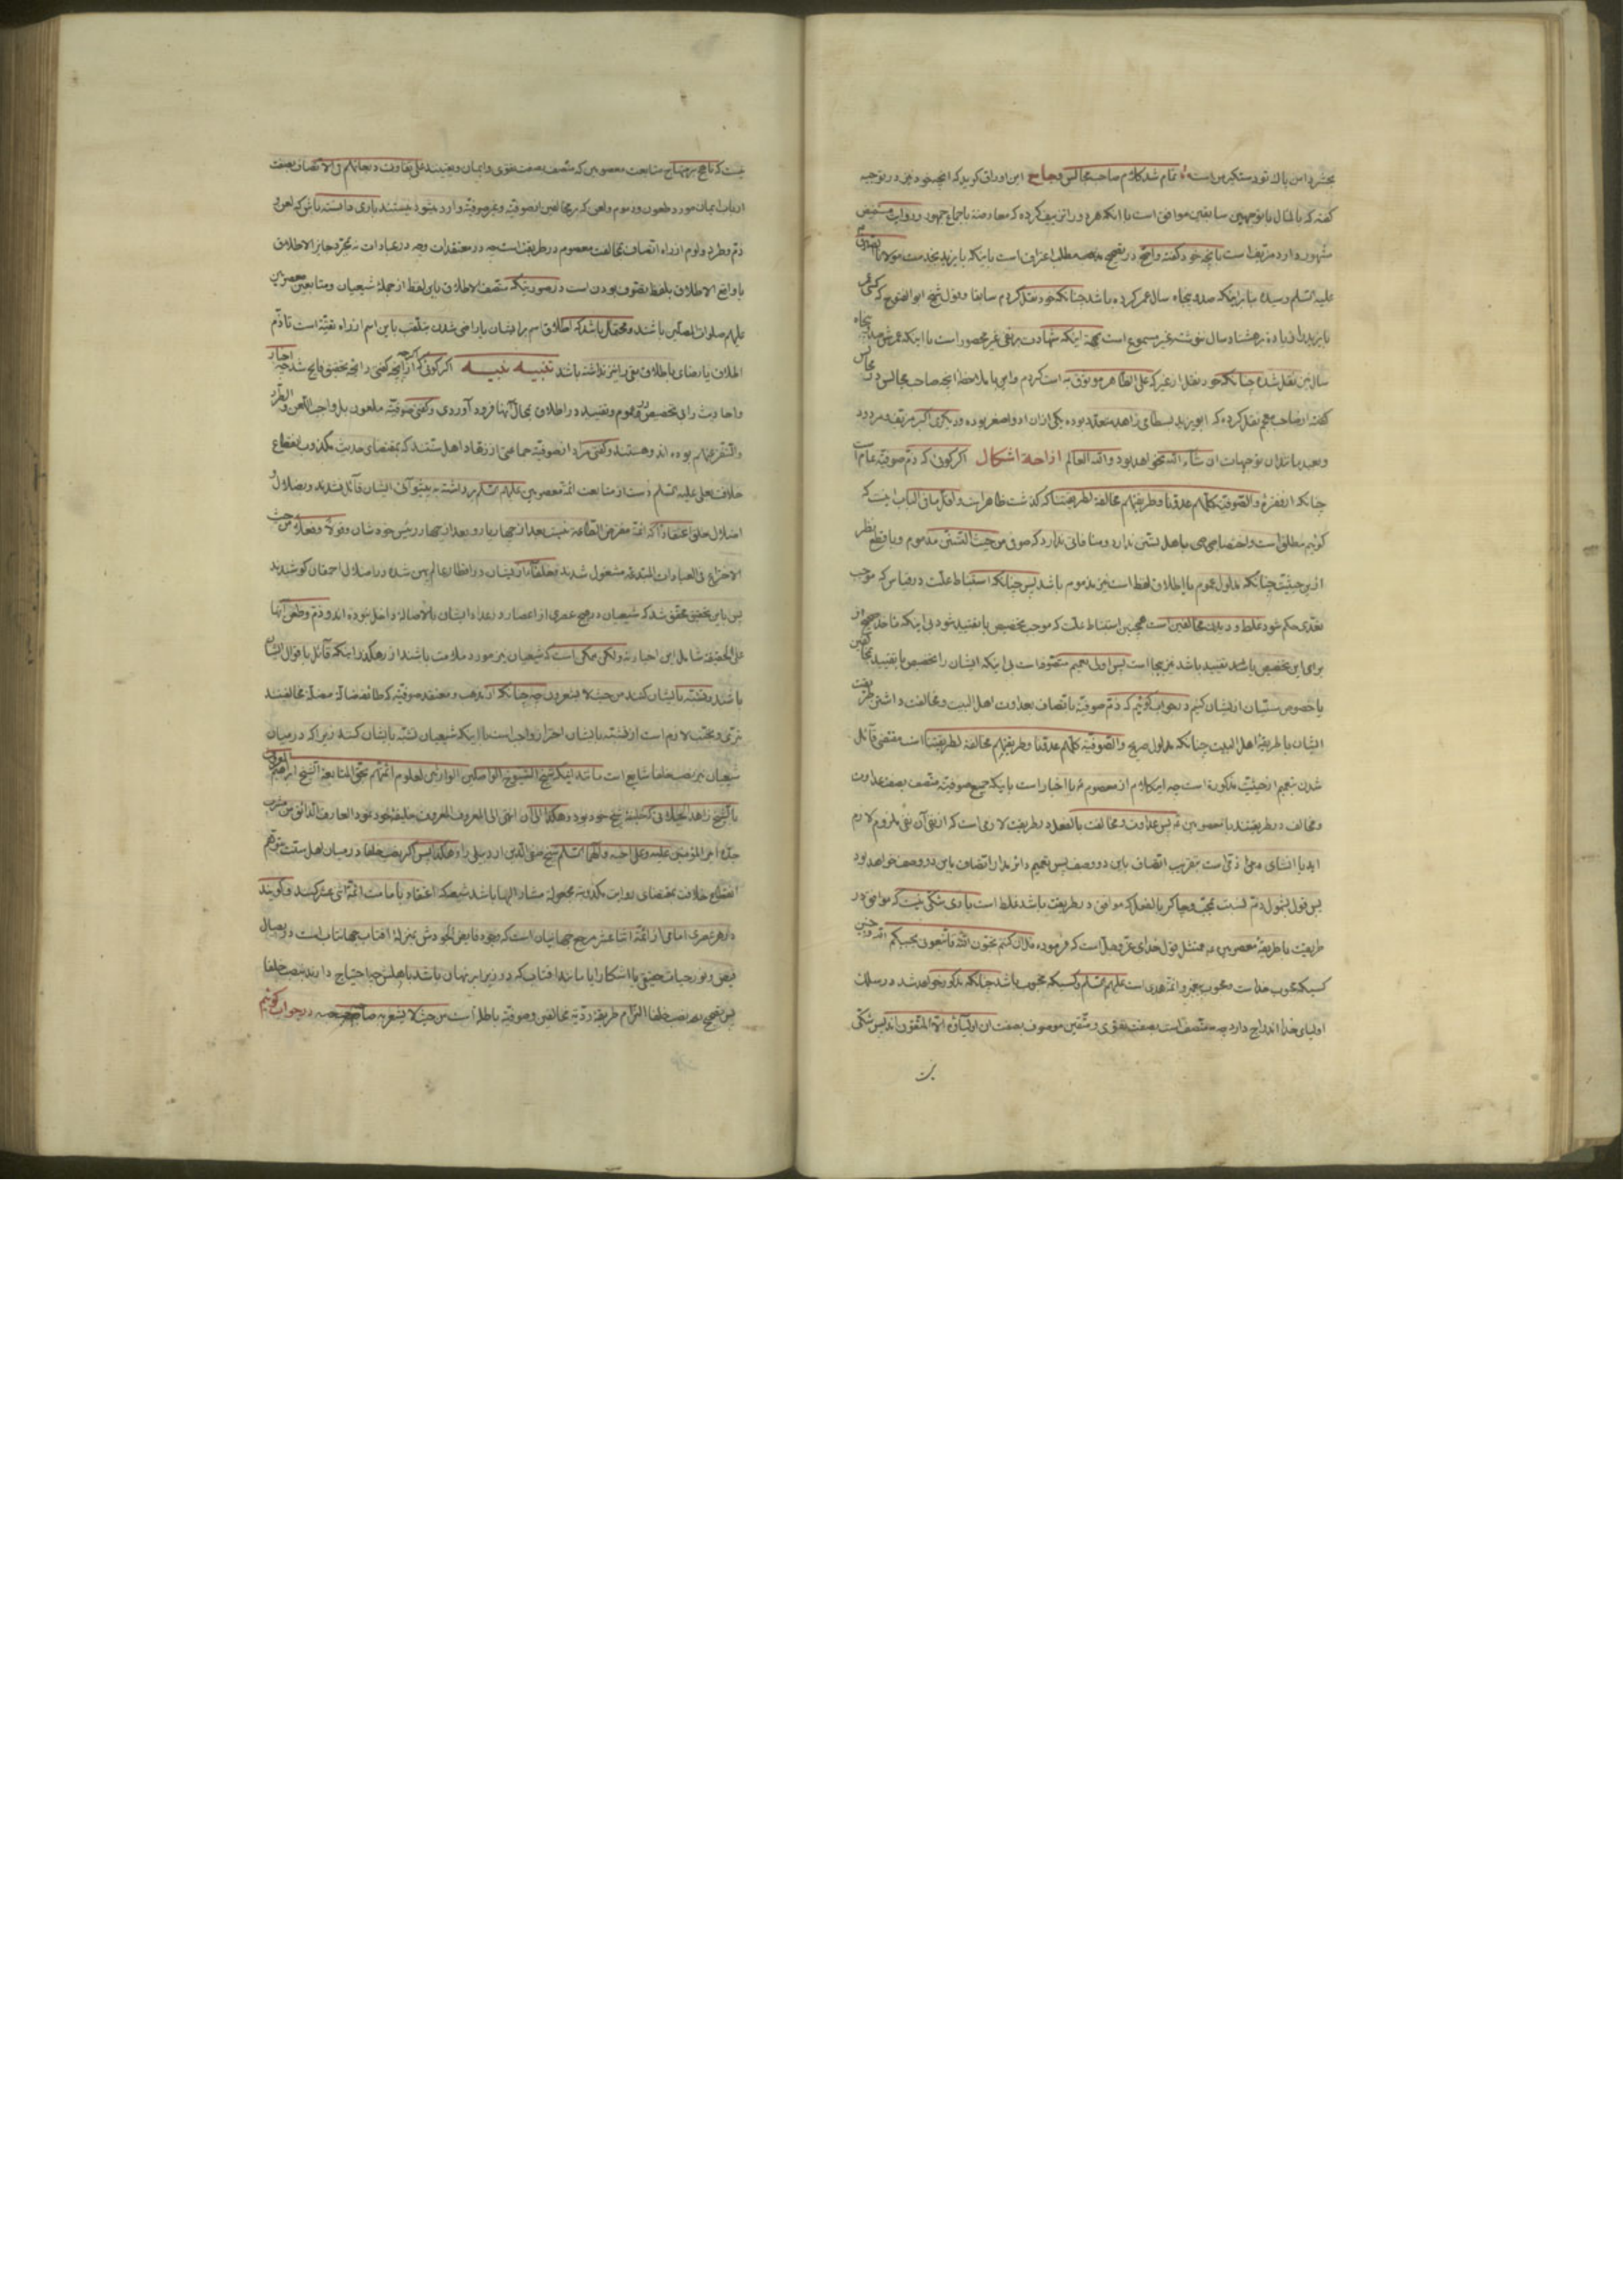 بحشر دامن پاك تو دستگیر من است تمام شد کلام صاحب مجالس و جامع این اوراق گوید که آنچه خود نیز در توجیه
گفته که بالمآل با توجیهین سابقین موافق است با آنکه هر دو را تزییف کرده که معارضه با جماع جمهور و روایت مستفیض
مشهور دارد مزیف است بآنچه خود گفته و آنچه در تصحیح مطلب اعتراف است باینکه بایزید بخدمت مولانا
علیه السلم رسیده بنا بر اینکه صد و پنجاه سال عمر کرده باشد چنانکه خود نقل کردم سابقا و قول شیخ ابو الفتوح که
بایزید را زیاده بر هشتاد سال نوشته غیر مسموع است بجهة اینکه شهادت بر نفی غیر محصور است با اینکه عمرش صد و پنجاه
سال نیز نقل شده چنانکه خود نقل از غیر که علی الظاهر موثوق به است کردم و این با ملاحظه آنچه صاحب مجالس در
گفته از صاحب معجم نقل کرده که ابو یزید بسطامی زاهد متعدد بوده یکی از آن دو اصغر بوده و دیگری اکبر مزیف و مردود
و بعید مانند آن توجیهات ان شاء الله نخواهد بود والله العالم ازاحة اشکال اگر گوئی که ذم صوفیه عام است
چنانکه از فقره والصوفیة کلهم عدونا وطریقتهم مخالفة لطریقتنا که گذشت ظاهر است و اقل ما فی الباب اینست که
گوئیم مطلق است و اختصاصی باهل تسنن ندارد و منافاتی ندارد که صوفی من حیث التسنن مذموم و با قطع نظر
از این حیثیت چنانکه مدلول عموم یا اطلاق لفظ است نیز مذموم باشد پس چنانکه استنباط علت در قیاس که موجب
تعدی حکم شود غلط و دیدن مخالفین است همچنین استنباط علت که موجب تخصیص یا تقیید شود بی اینکه مأخذ صحیح از
برای این تخصیص باشد تقیید باشد نیز بیجا است پس اولی تعمیم متصوفه است بی اینکه ایشان را تخصیص یا تقیید بمخالفین
یا خصوص سنیان از ایشان کنیم در جواب گوئیم که ذم صوفیه باتصاف بعداوت اهل البیت و مخالفت داشتن طریقت
ایشان با طریقه اهل البیت چنانکه مدلول صریح والصوفیة کلهم عدونا وطریقتهم مخالفة لطریقتنا است مقتضی قائل
شدن بتعمیم از حیثیت مذکوره است چه این کلام از معصوم ع یا اخبار است باینکه جمیع صوفیه متصف بصفة عداوت
و مخالف در طریقتند با معصومین ع پس عداوت و مخالفت بالفعل در طریقت لازمی است که از نفی آن نفی ملزوم لازم
آید یا انشای ذمی است بتقریب اتصاف باین دو وصف پس تعمیم دائر مدار اتصاف باین دو وصف خواهد بود
پس قول بشمول ذم نسبت بمحب و چاکر بالفعل که موافق در طریقت باشد غلط است باری شکی نیست که موافق در
طریقت با طریقه معصومین ع ممتثل قول خدای عز وجل است که فرموده قل ان کنتم تحبون الله فاتبعونی یحببکم الله و چنین
کسیکه محبوب خداست و محبوب پیغمبر و ائمه هدی است علیهم السلم و کسیکه محبوب باشد چنانکه مذکور خواهد شد در سلك
اولیای خدا اندراج دارد چه متصف است بصفت تقوی و متقین موصوف بصفت ان اولیاؤه الا المتقون اند پس شکی
نیست که ناهج بر منهاج متابعت معصومین که متصف بصفت تقوی و ایمان و یقینند علی تفاوت درجاتهم فی الاتصاف بصفت
ارباب ایمان مورد طعون و ذموم و لعن که بر مخالفین از صوفیه و غیر صوفیه وارد میشود نیستند باری دانسته باش که لعن و
ذم و طرد و لوم از راه اتصاف بمخالفت معصوم در طریقت است چه در معتقدات و چه در عبادات نه بمجرد جایز الاطلاق
یا واقع الاطلاق بلفظ تصوف بودن است در صورتیکه متصف الاطلاق باین لفظ از جمله شیعیان و متابعین معصومین
علیهم صلوات المصلین باشند و محتمل باشد که اطلاق اسم بر ایشان یا راضی شدن بتلقب باین اسم از راه تقیه است تا ذم
اطلاق یا رضای باطلاق نفی را ضرر نداشته باشد تنبیه نبیه اگر گوئی که از آنچه گفتی و آنچه تحقیق واضح شد چه اخبار
و احادیث را بی تخصیص در عموم و تقیید در اطلاق بحال آنها فرود آوردی و گفتی صوفیه ملعون بل واجب اللعن والطرد
والتنفر عنهم بوده اند و هستند و گفتی مراد از صوفیه جماعتی از زهاد اهل سنتند که بمقتضای حدیث مکذوب بانقطاع
خلافت علی علیه السلم دست از متابعت ائمه معصومین علیهم السلم برداشته به پیشوائی ایشان قائل نشدند و بضلال و
اضلال خلق اعتقادا که ائمه مفترض الطاعة نیست بعد از چهار یار و بعد از چهار رئیس خودشان و قولا و فعلا من حیث
الاختراع فی العبادات المبتدعه مشغول شدند و خلفاء از ایشان در اقطار عالم پهن شده در اضلال احمقان کوشیدند
پس باین تحقیق محقق شد که شیعیان در هیچ عصری از اعصار در تعداد ایشان بالاصاله داخل نبوده اند و ذم و طعن آنها
علی الحقیقة شامل این اخیار نه ولکن ممکن است که شیعیان نیز مورد ملامت باشند از رهگذر اینکه قائل باقوال ایشان
باشند و تشبه بایشان کنند من حیث لا یشعرون چه چنانکه از مذهب و معتقد صوفیه که طائفه ضاله مضله مخالفینند
تبری و تجنب لازم است از تشبه بایشان احتراز واجب است با اینکه شیعیان تشبه بایشان کنند زیرا که در میان
شیعیان نیز نصب خلفا شایع است مانند اینکه شیخ الشیوخ الواصلین الوارثین لعلوم ائمتهم بحق المتابعة الشیخ
یا الشیخ زاهد الجیلانی که خلیفه شیخ خود بود و هکذا الی ان انتهی الی المعروف المعروف خلیفه خود نمود العارف الذائق من مشرب
جده امیر المؤمنین علیه وعلی احبه وآلهما السلم شیخ صفی الدین اردبیلی را و هکذا پس اگر نصب خلفا در میان اهل سنت بتوهم
انقطاع خلافت بمقتضای روایت مکذوبه مجعوله مشار الیها باشد شیعه که اعتقاد بامامت ائمه اثنی عشر کنند و گویند
در هر عصری امامی از ائمه اثنا عشر مرجع جهانیان است که وجود فایض الجودش بمنزله آفتاب جهانتاب است در ایصال
فیض و نور حیات حقیقی یا آشکارا یا مانند آفتاب که در زیر ابر نهان باشد باهلش چه احتیاج دارند بنصب خلفا
پس تصحیح نصب خلفا التزام طریقه ردیه مخالفین و صوفیه باطله است من حیث لا یشعر به صاحبه در جواب گوئیم